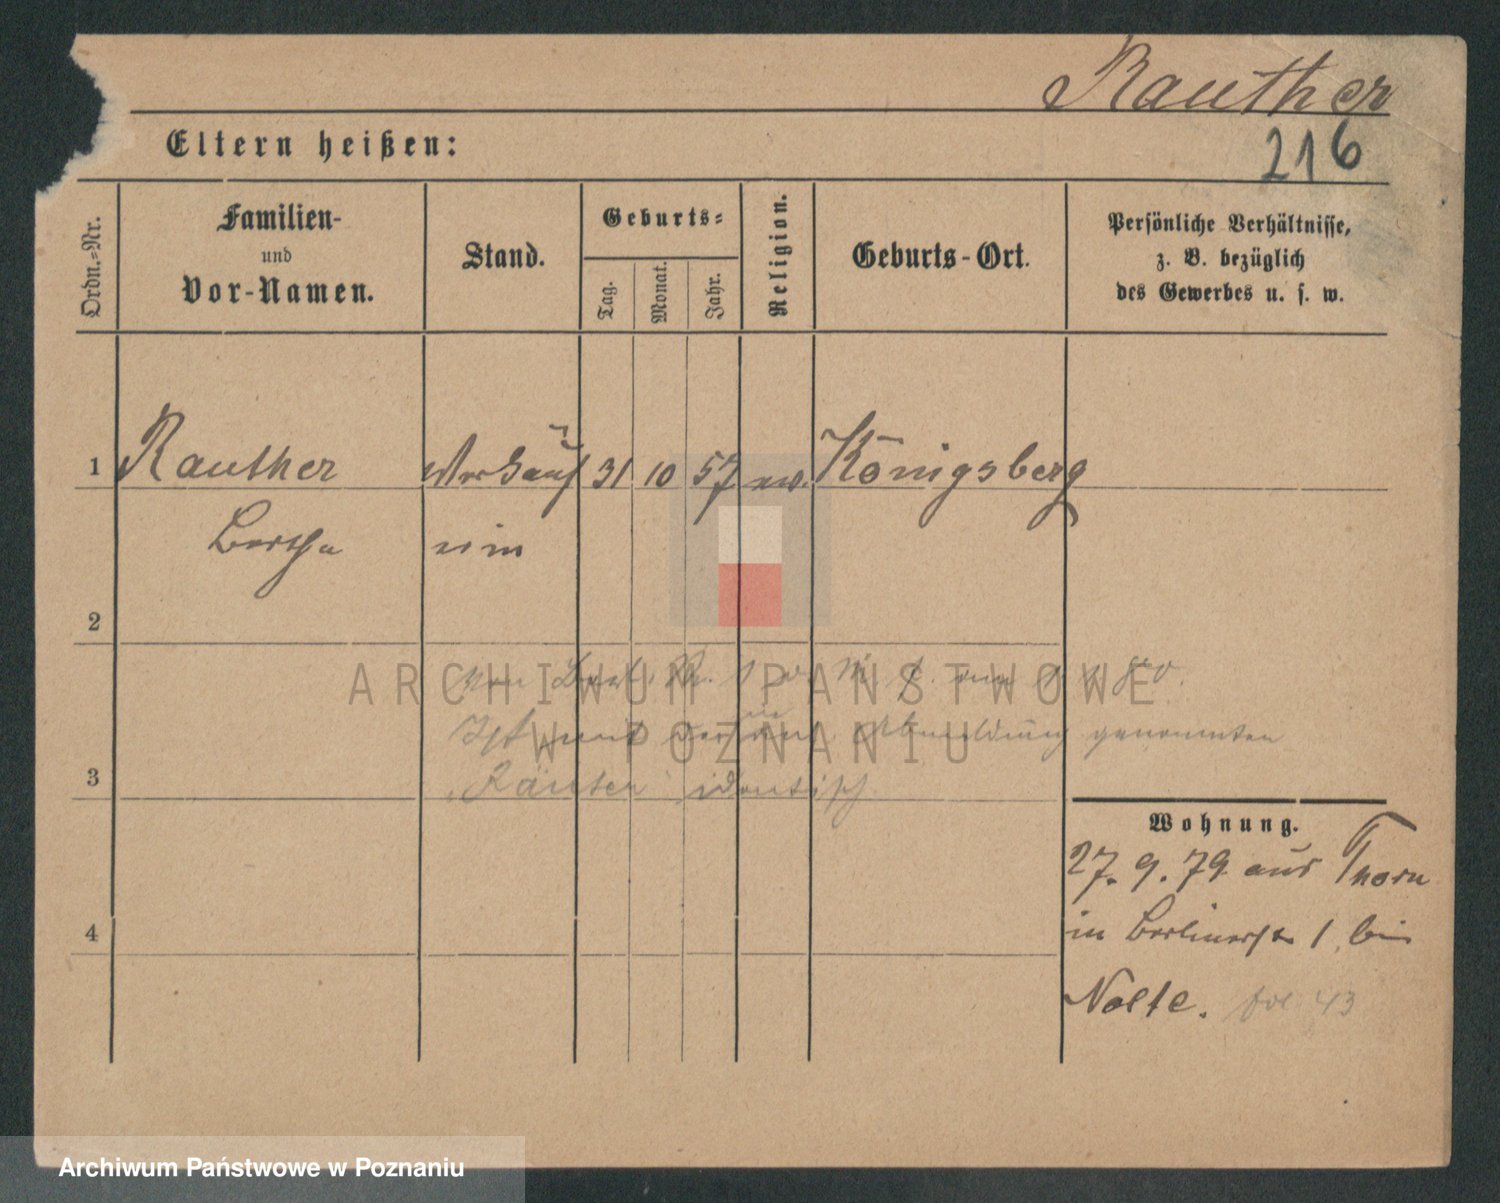 Rauther
216
Eltern heißen:
Ordn.-Nr.
Familien-
und
Vor-Namen.
Stand.
Geburts-
Tag.
Monat.
Jahr.
Religion.
Geburts-Ort.
Persönliche Verhältnisse,
z. B. bezüglich
des Gewerbes u. s. w.
1 Rauther Verkäuf 31 10 57 ev. Königsberg
Bertha erin
2
ARCHIWUM PAŃSTWOWE
W POZNANIU
Abmeldung genannten
3
Räuter identisch
Wohnung.
27. 9. 79 aus Thorn
4
in Berlinerstr 1, bei
Nolte. 43
Archiwum Państwowe w Poznaniu